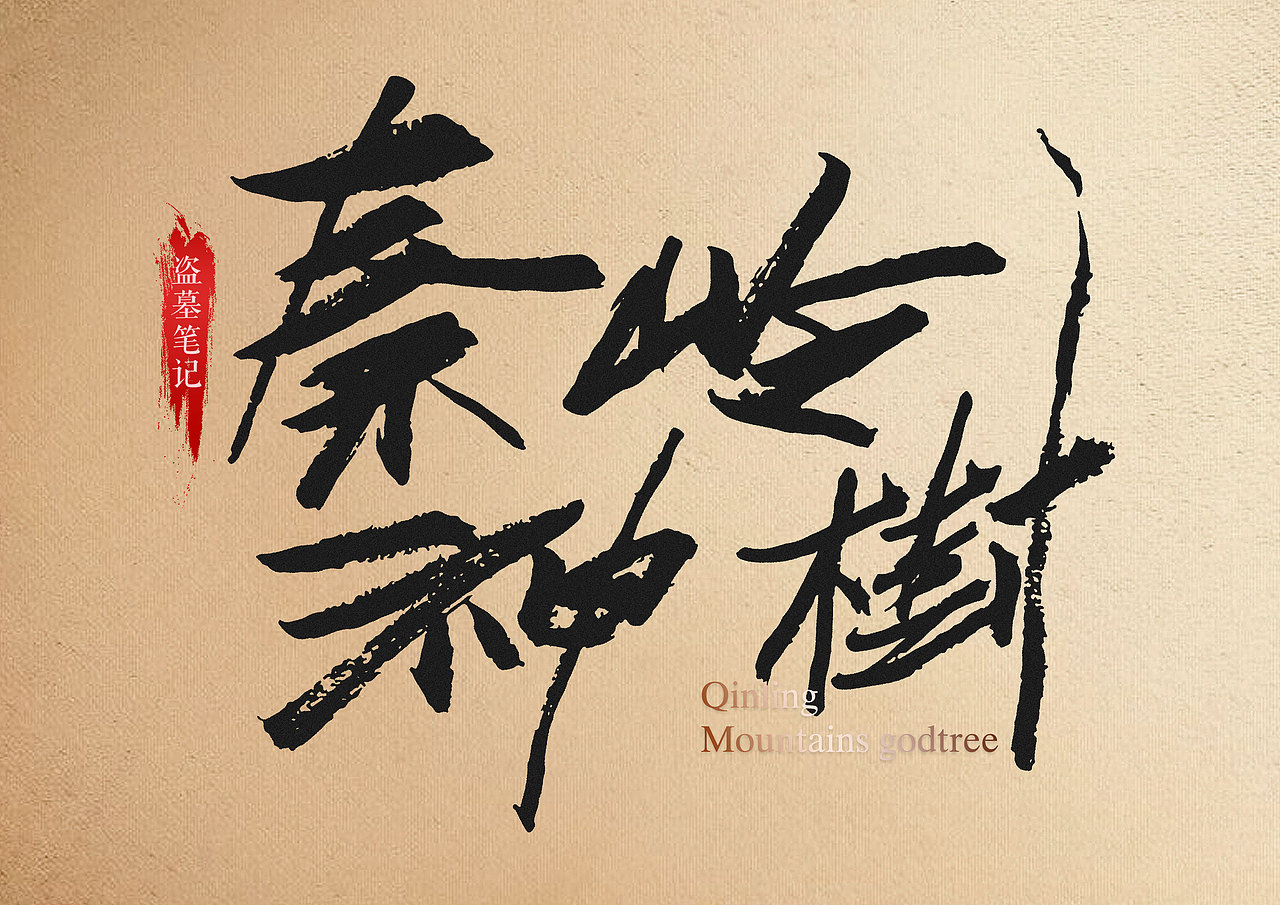 盗墓笔记
秦岭
神樹
Qinling
Mountains godtree